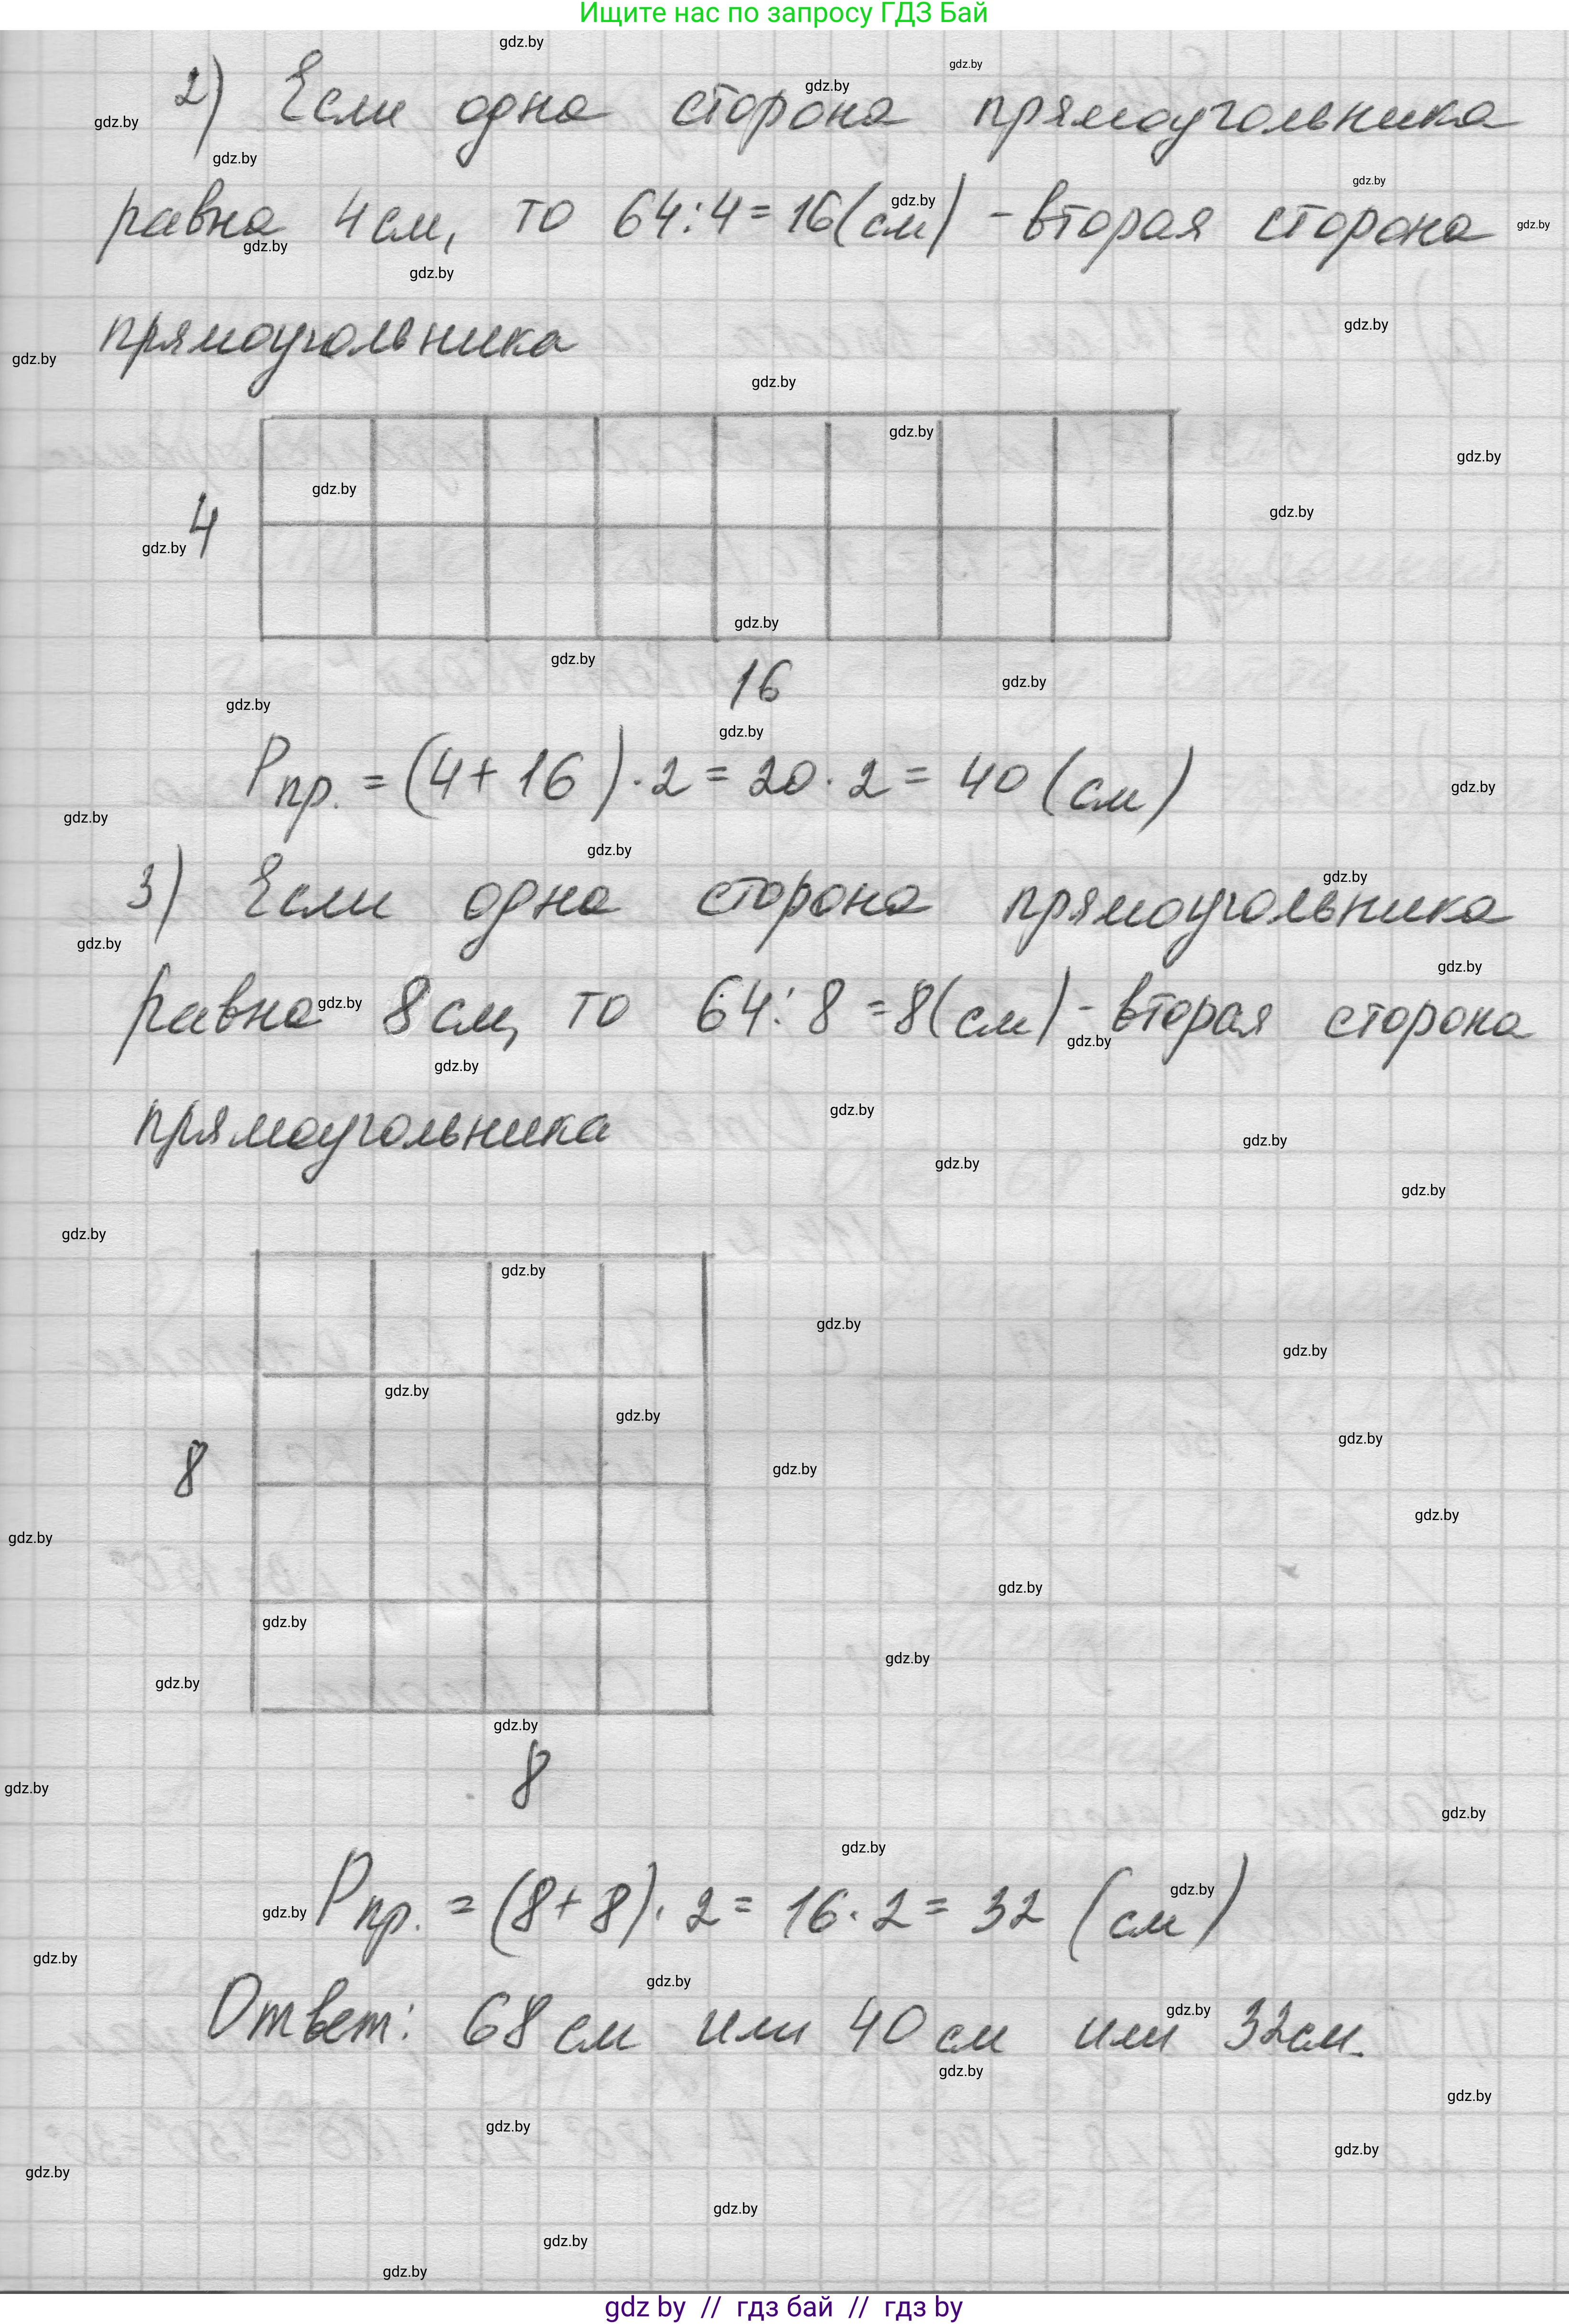 Ищите нас по запросу ГДЗ Бай
2) Если одна сторона прямоугольника
равна 4 см, то 64:4=16(см) - вторая сторона
прямоугольника
4
16
Pпр. = (4+16)·2=20·2=40(см)
3) Если одна сторона прямоугольника
равна 8 см, то 64:8=8(см) - вторая сторона
прямоугольника
8
8
Pпр. = (8+8)·2=16·2=32 (см)
Ответ: 68 см или 40 см или 32 см.
gdz by // гдз бай // гдз by
gdz.by